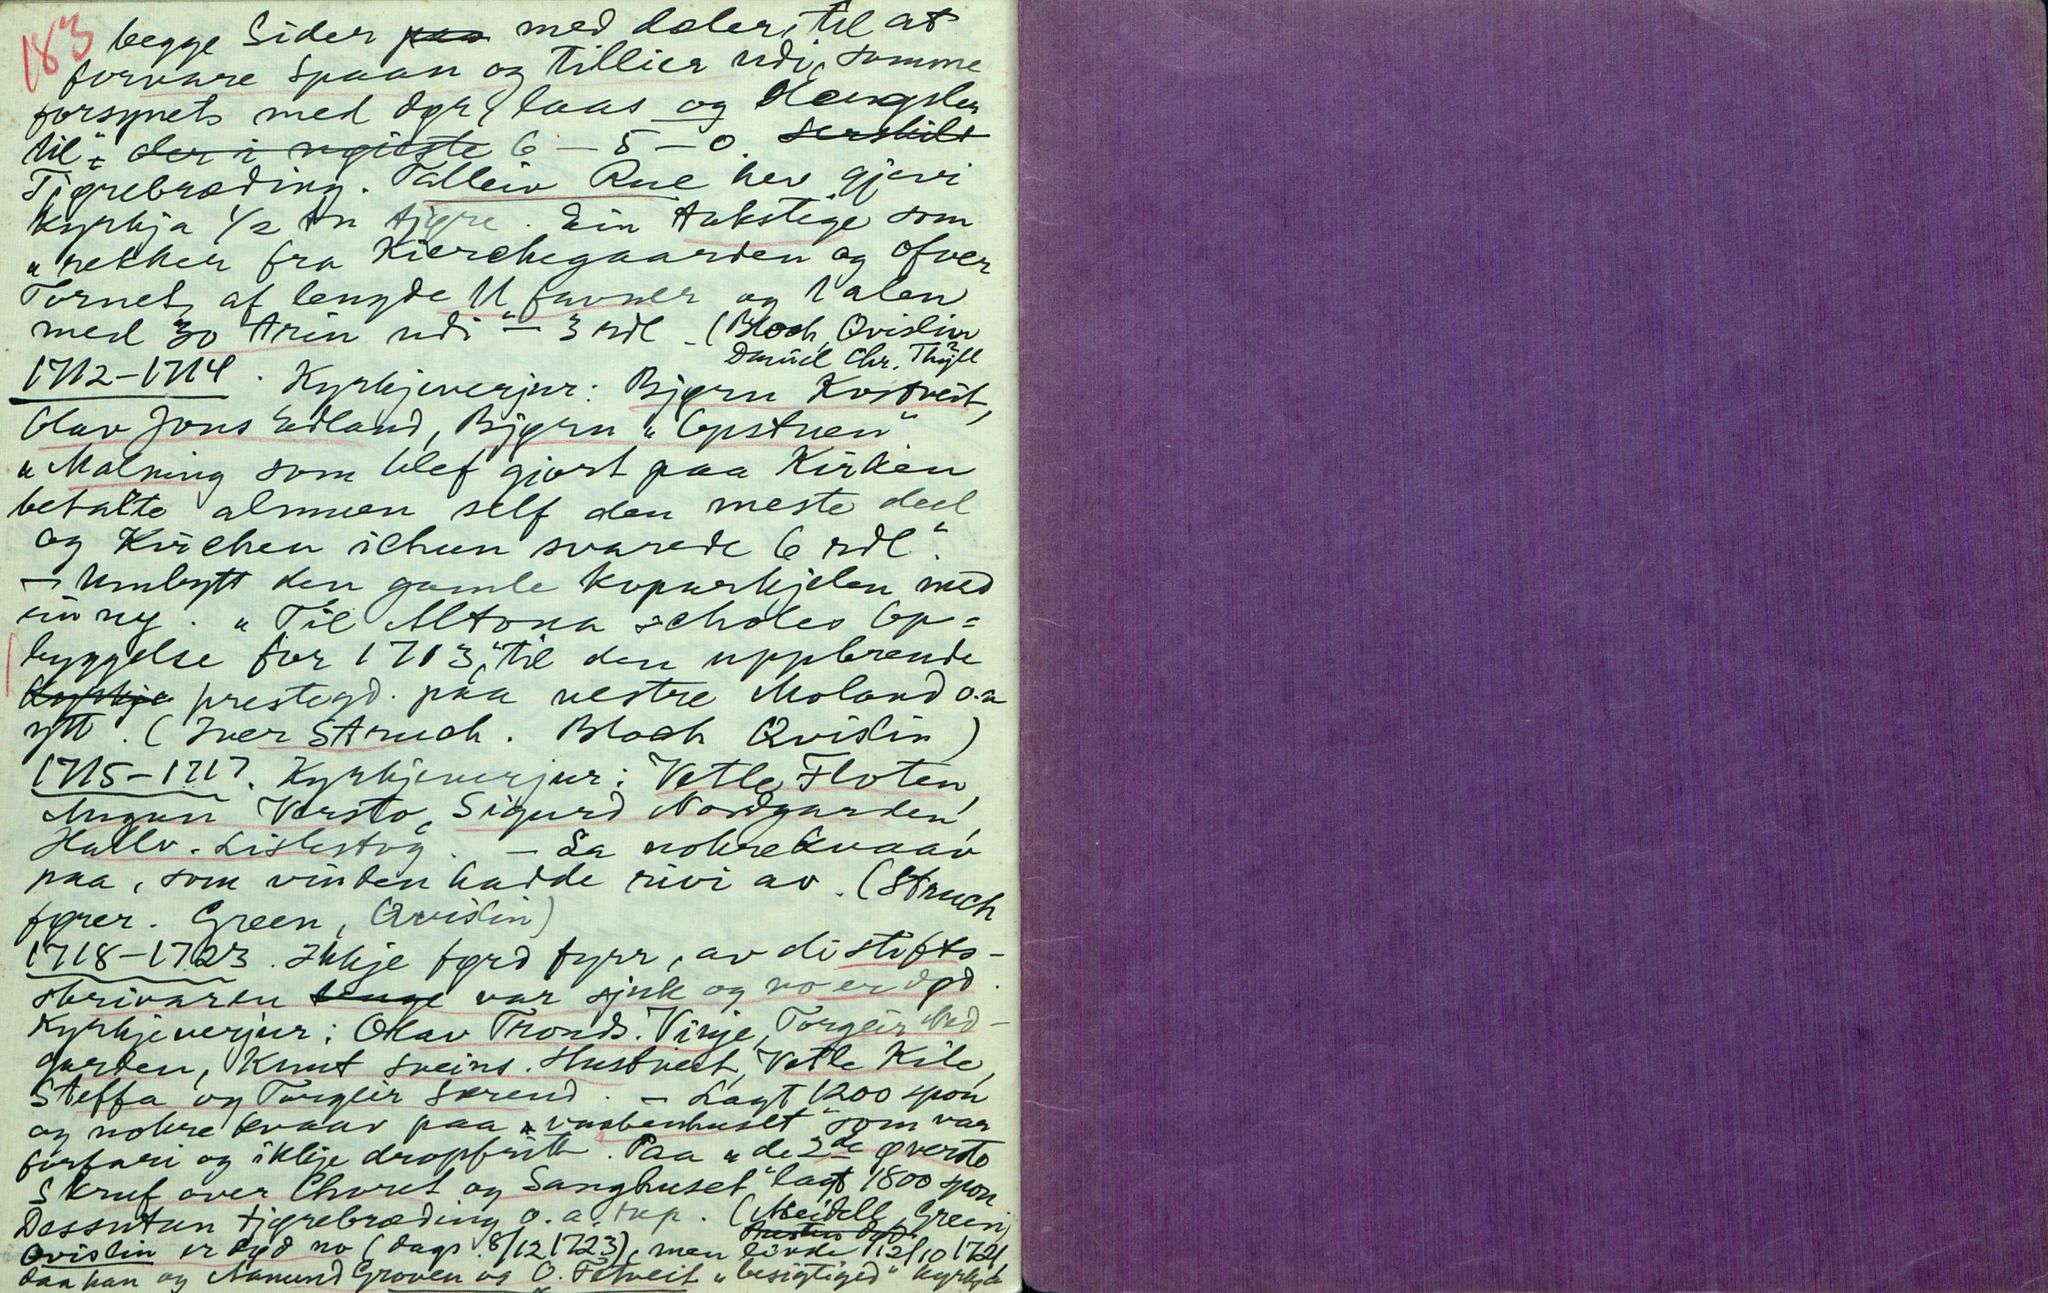 183
begge Sider paa med døler, til at
forvare Spaan og tillier udi, somme
forsynet med dør, laas og Hengsler
til" - der i ngiøste 6 — 5 — 0. Serskilt
Tjørebræding. Talleiv Rue hev gjevi
Kyrkja 1/2 tn tjøre. Ein takstige som
"rekker fra Kierchegaarden og ofver
Tornet, af lengde 11 favner og 1 alen
med 30 trin udi" — 3 rdl — (Bloch, Qvislin
Daniel Chr. Thyll
1712–1714. Kyrkjeverjur: Bjørn Kostveit,
Olav Jons Edland, Bjørn "Opstuen"
"Malning som blef gjort paa Kirken
betalte almuen self den meste deel
og Kirchen ichun svarede 6 rdl".
— Umbytt den gamle koparkjelen med
ein ny. "Til Altona scholes op=
byggelse for 1713", til den uppbrende
Kyrkje prestegd. paa vestre Moland o.a
ytt. (Iver Struch. Bloch Qvislin)
1715–1717. Kyrkjeverjur: Vetle Floten,
Augun Versto, Sigurd Nordgarden,
Hallv. Lislestog. — Sa nokre kvaav
paa, som vinden hadde rivi av. (Struch
fører. Green, Qvislin)
1718–1723. Ikkje førd fyrr, av di stifts-
skrivaren lenge var sjuk og no er død.
Kyrkjeverjur: Olav Tronds. Vinje, Torgeir Ned-
garden, Knut Sveins. Hustveit, Vetle Kile,
Steffa og Torgeir Særend. — Lagt 1200 spon
og nokre kvaav paa "vaabenhuset" som var
forfari og ikkje dropfritt. Paa "de 2de øverste
Skruf over Choret og Sanghuset" lagt 1800 spon
Dessutan tjørebræding o.a. rep. (Meidell, Green,
Qvislin er død no (dags. 8/12 1723), men livde 12/10 1721
daa han og Aamund Groven og O. Tetveit "besigtiged" kyrkja